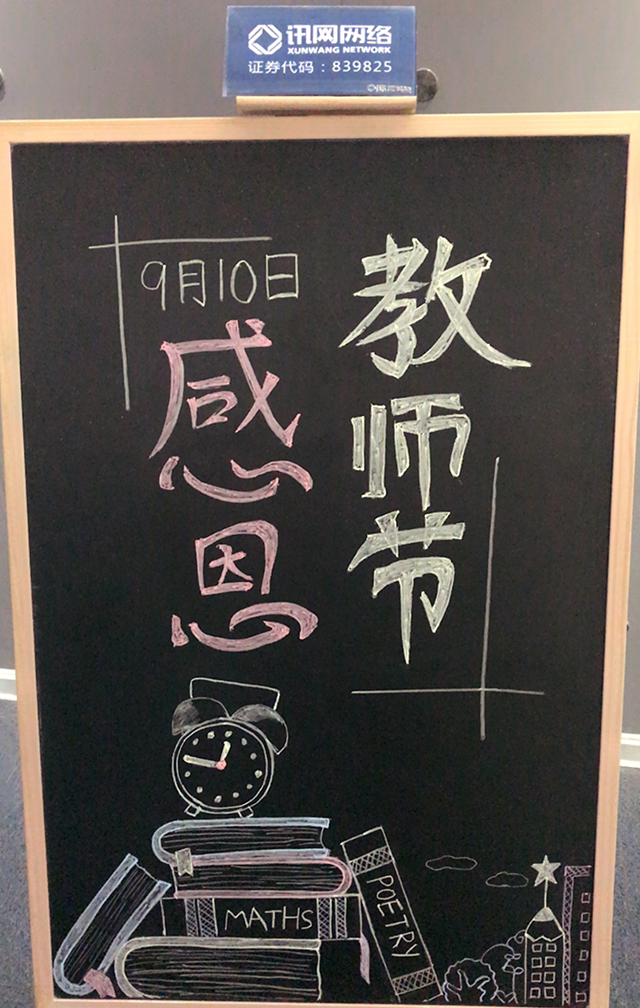 讯网网络
XUNWANG NETWORK
证券代码：839825
教师节
9月10日
感恩
MATHS
POETRY